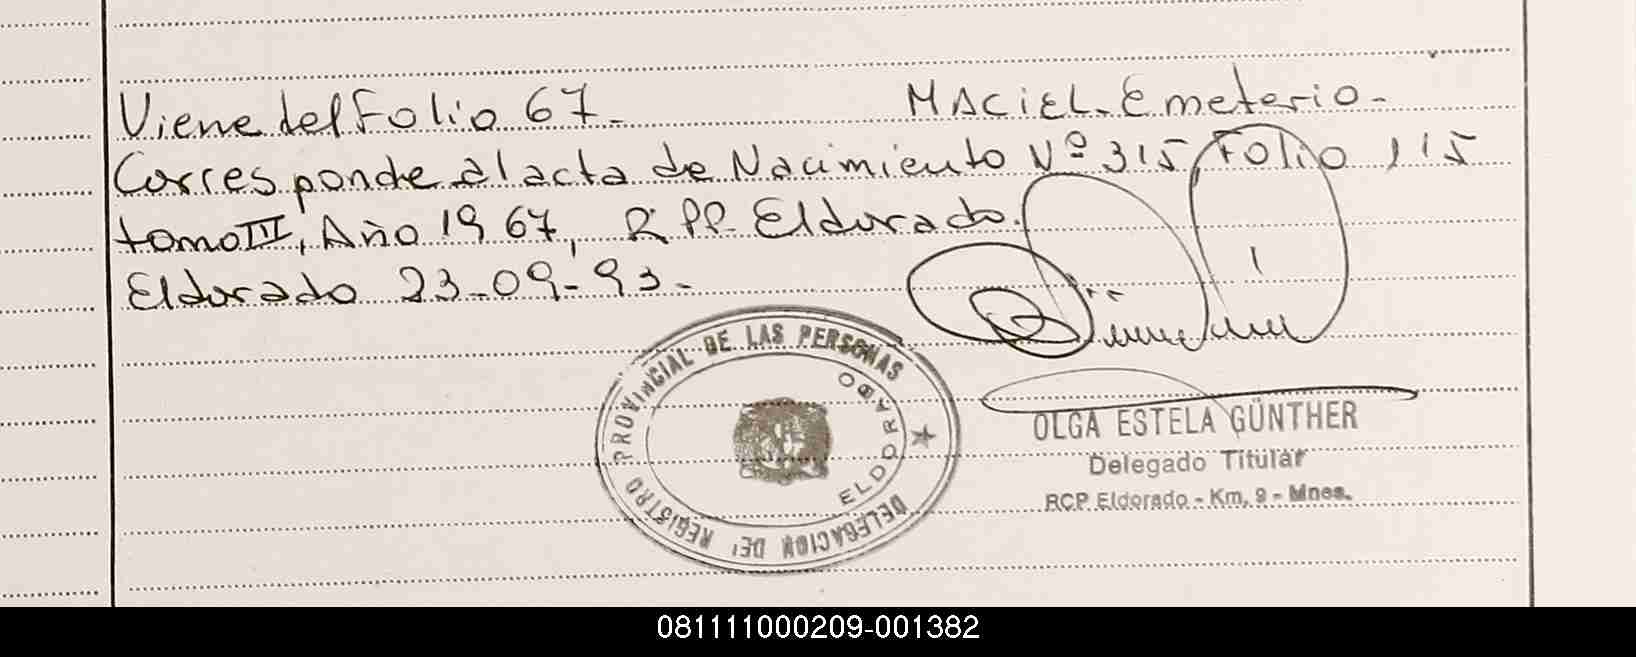 Viene del Folio 67. MACIEL. Emeterio-
Corresponde al acta de Nacimiento Nº 315, Folio 115
tomo III, Año 1967, R.PP. Eldorado.
Eldorado 23-09-93-
REGISTRO PROVINCIAL DE LAS PERSONAS
DELEGACION DE
ELDORADO
OLGA ESTELA GÜNTHER
Delegado Titular
RCP Eldorado - Km. 9 - Mnes.
081111000209-001382